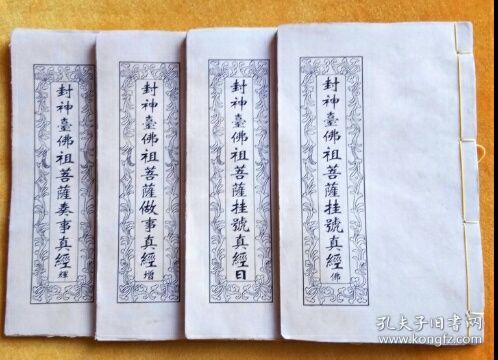 封神臺佛祖菩薩挂號真經佛
封神臺佛祖菩薩挂號真經日
封神臺佛祖菩薩做事真經增
封神臺佛祖菩薩奏事真經輝
孔夫子旧书网
kongfz.com